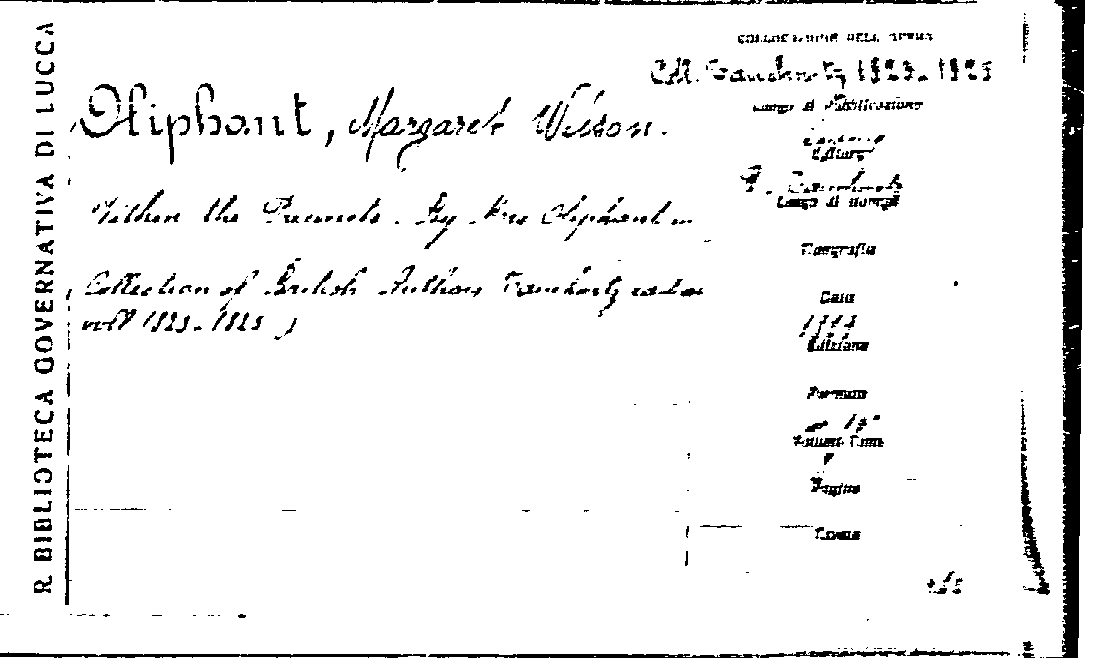 R BIBLIOTECA GOVERNATIVA DI LUCCA
Oliphant, Margaret Wilson.
Within the Precincts. By Mrs Oliphant
Collection of British Authors Tauchnitz
voll 1823-1825)
COLLOCAZIONE DELL'OPERA
Coll. Tauchnitz 1823-1825
Luogo di Pubblicazione
Editore
Tauchnitz
Luogo di stampa
Tipografia
Data
Edizione
Formato
Volumi
Pagine